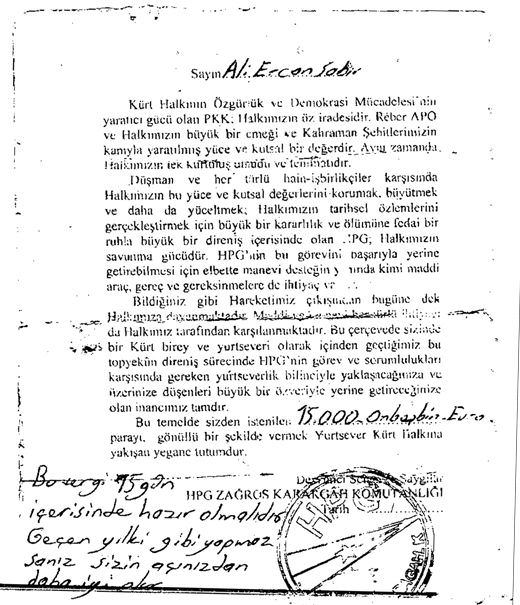 Sayın Ali Ercan Sabır
Kürt Halkının Özgürlük ve Demokrasi Mücadelesi'nin
yaratıcı gücü olan PKK; Halkımızın öz iradesidir. Rêber APO
ve Halkımızın büyük bir emeği ve Kahraman Şehitlerimizin
kanıyla yaratılmış yüce ve kutsal bir değerdir. Aynı zamanda,
Halkımızın tek kurtuluş umudu ve teminatıdır.
Düşman ve her türlü hain-işbirlikçiler karşısında
Halkımızın bu yüce ve kutsal değerlerini korumak, büyütmek
ve daha da yüceltmek; Halkımızın tarihsel özlemlerini
gerçekleştirmek için büyük bir kararlılık ve ölümüne fedai bir
ruhla büyük bir direniş içerisinde olan HPG; Halkımızın
savunma gücüdür. HPG'nin bu görevini başarıyla yerine
getirebilmesi için elbette manevi desteğin yanında kimi maddi
araç, gereç ve gereksinmelere de ihtiyaç
Bildiğiniz gibi Hareketimiz çıkışından bugüne dek
Halkımıza dayanmaktadır.
da Halkımız tarafından karşılanmaktadır. Bu çerçevede sizinde
bir Kürt birey ve yurtseveri olarak içinden geçtiğimiz bu
topyekün direniş sürecinde HPG'nin görev ve sorumlulukları
karşısında gereken yurtseverlik bilinciyle yaklaşacağınıza ve
üzerinize düşenleri büyük bir özveriyle yerine getireceğinize
olan inancımız tamdır.
Bu temelde sizden istenilen 15.000 Onbeşbin Euro
parayı, gönüllü bir şekilde vermek Yurtsever Kürt Halkına
yakışan yegane tutumdur.
Devrimci Selam ve Saygılar
HPG ZAĞROS KARARGAH KOMUTANLIĞI
Tarih ..../..../
Bu vergi 15 gün
içerisinde hazır olmalıdır
Geçen yılki gibi yapmaz
sanız sizin açınızdan
daha iyi olur
HPG